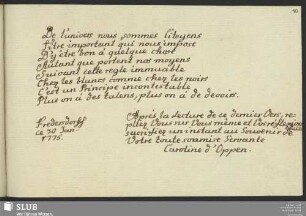 De l'univers nous sommes Citoyens
Titre important qui nous impose
D'y être bon a quelque chose
Autant que portent nos moyens
Suivant cette regle immuable
Chez les blancs comme chez les noirs
C'est un Principe incontestable
Plus on a des talens, plus on a de devoirs.
Fredersdorff
ce 20 Jan.
1775.
Après la Lecture de ce dernier Vers, re
pliez Vous sur Vous même et Votre
sacrifiez un instant au Souvenir de
Votre toute soumise Servante
Caroline d'Oppen.
SLUB
Wir führen Wissen.